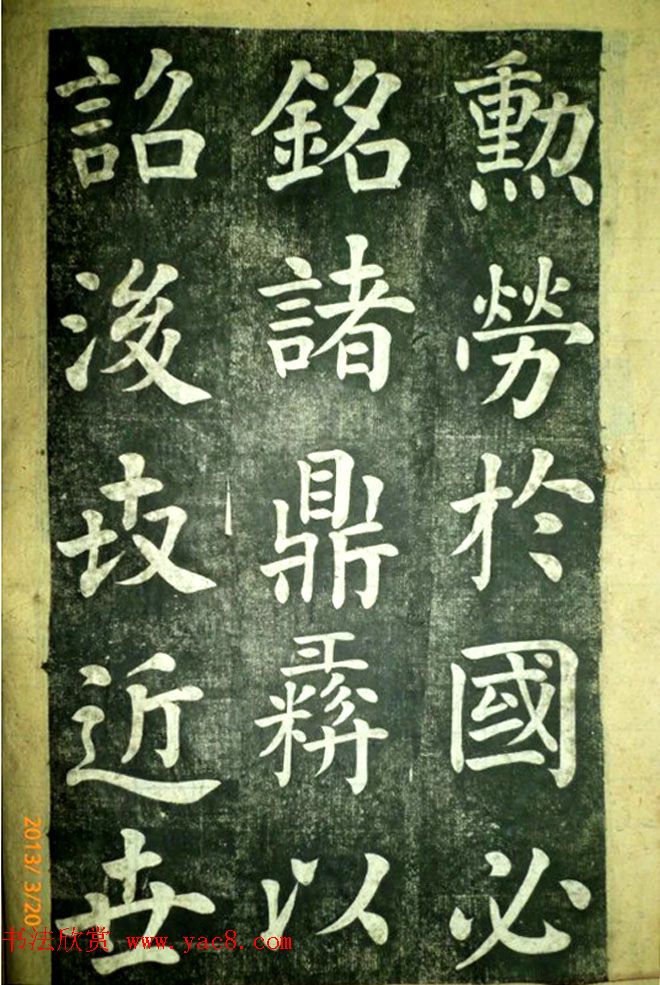 勳勞於國必
銘諸鼎彝以
詔後故近世
2013/ 3/20
书法欣赏 www.yac8.com